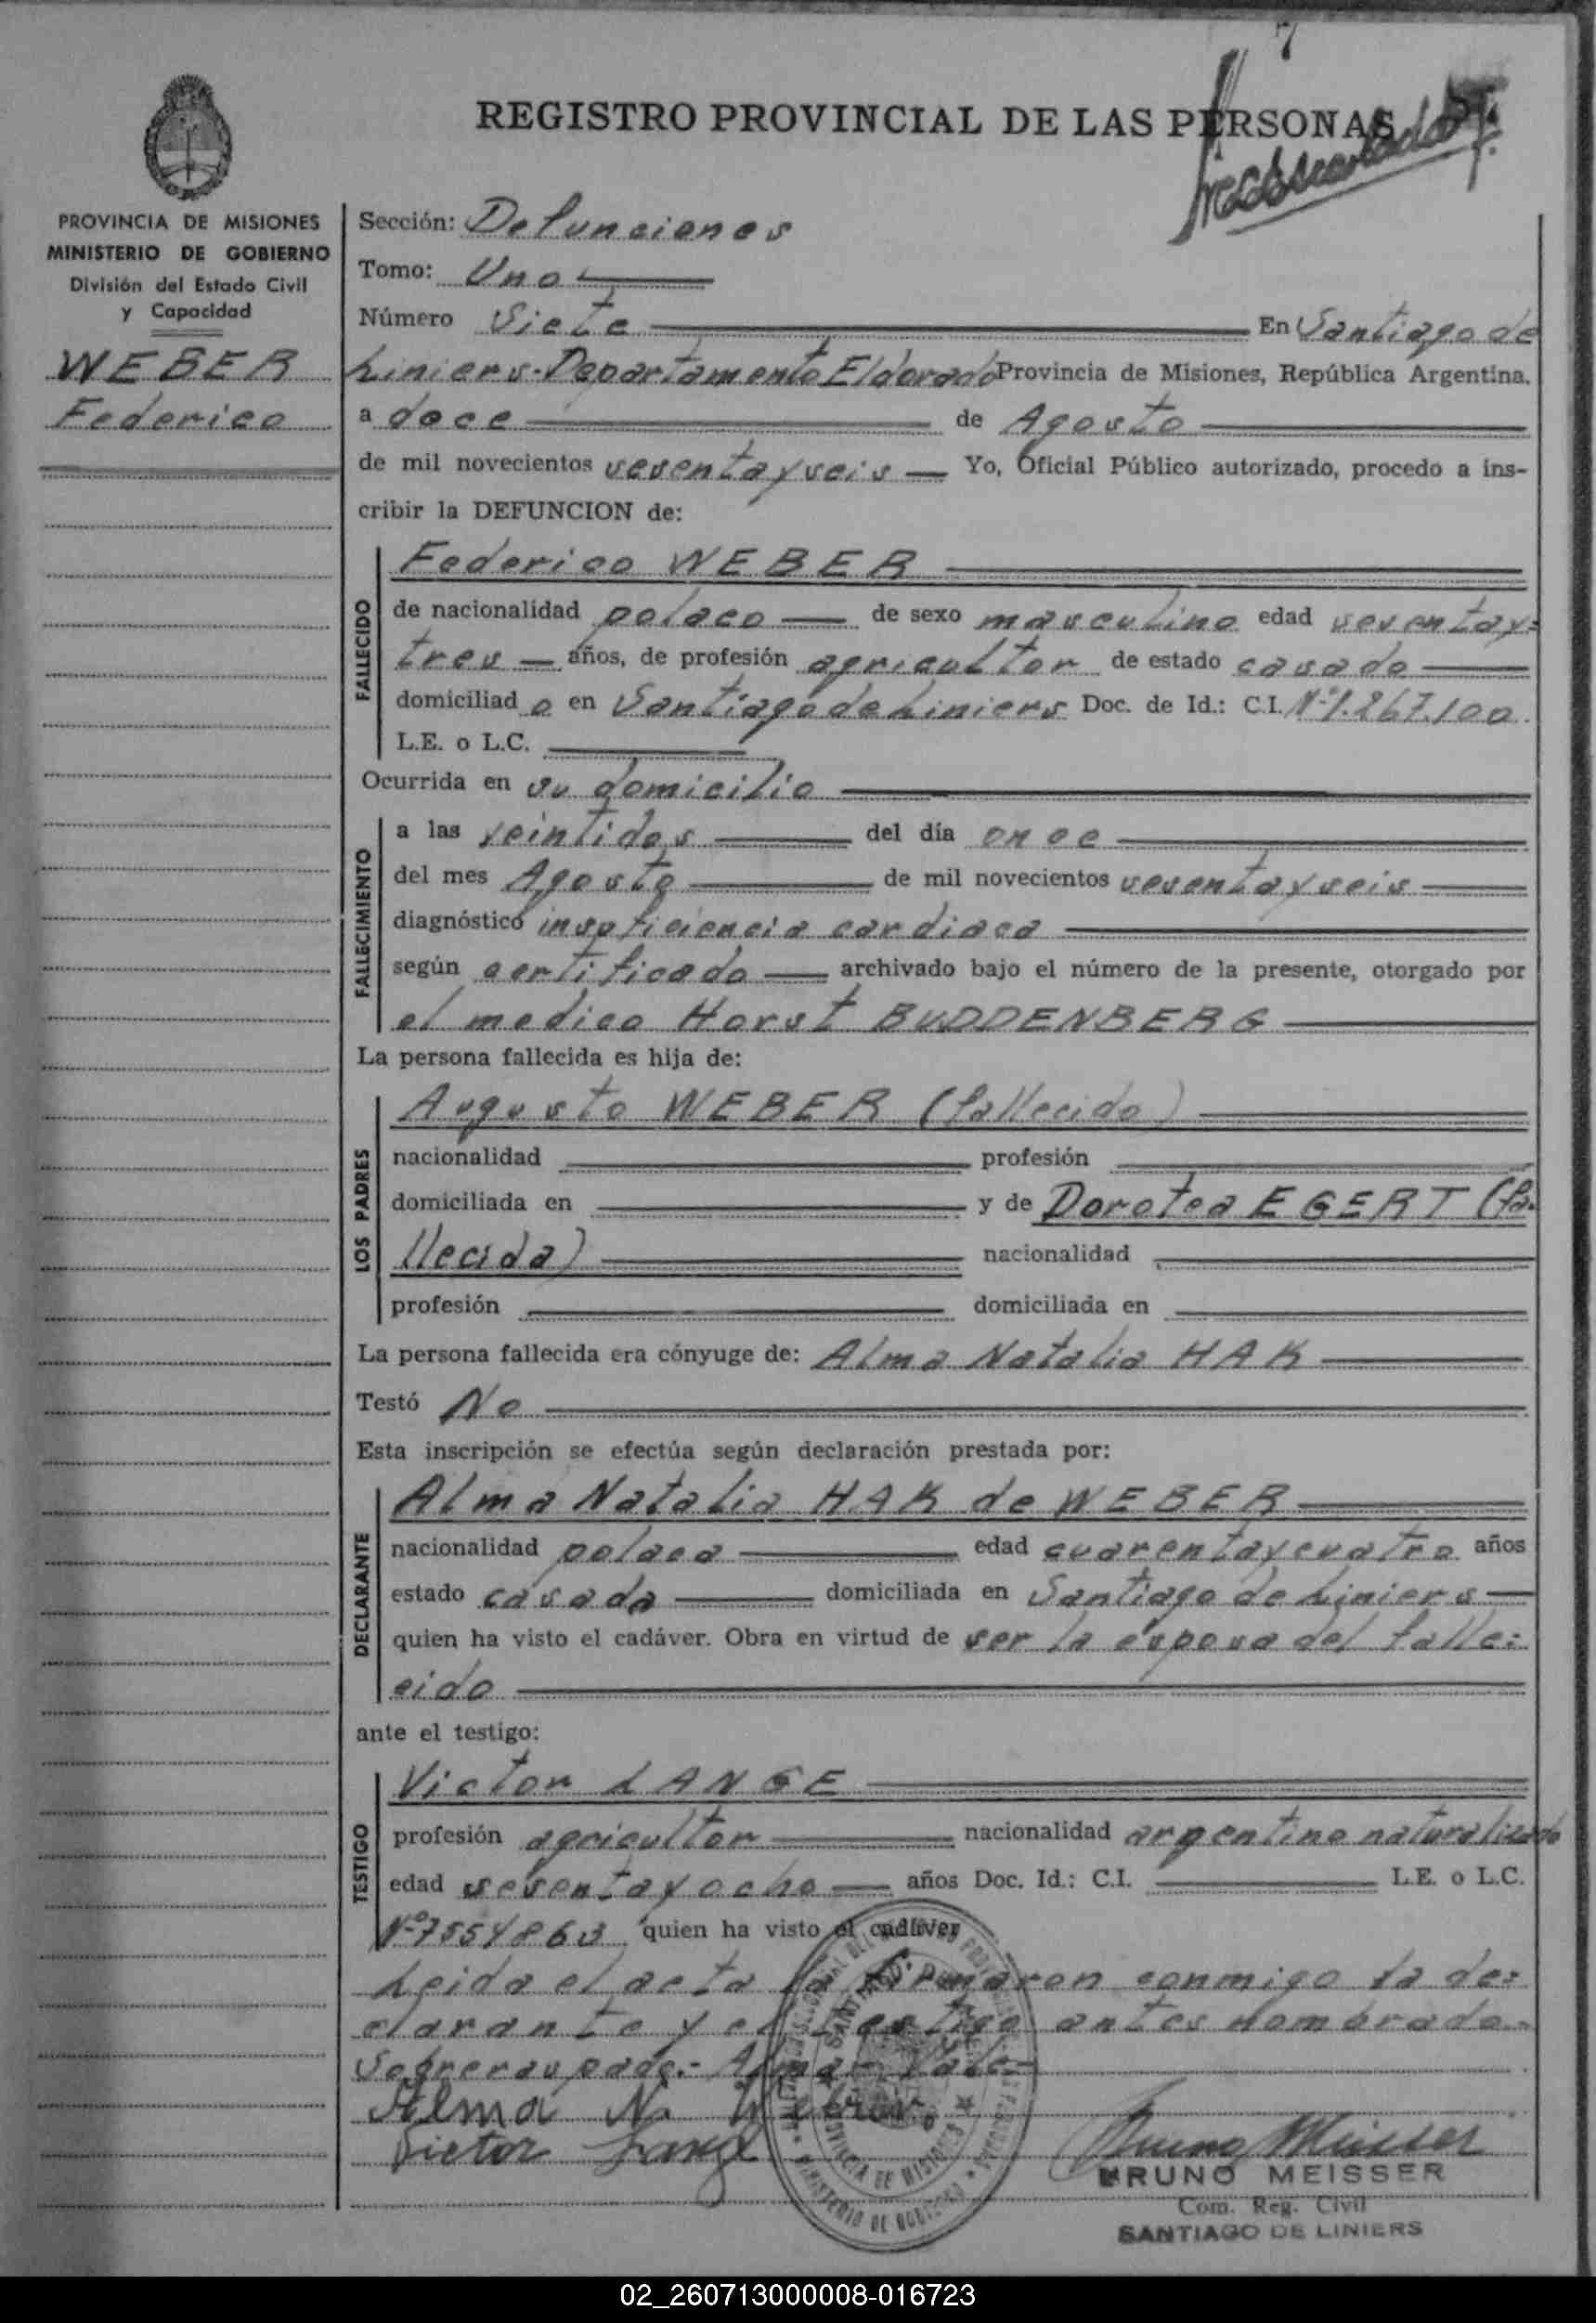 7
REGISTRO PROVINCIAL DE LAS PERSONAS
PROVINCIA DE MISIONES
MINISTERIO DE GOBIERNO
División del Estado Civil
y Capacidad
WEBER
Federico
Sección: Defunciones
Tomo: Uno
Número Siete En Santiago de
Liniers-Departamento Eldorado Provincia de Misiones, República Argentina,
a doce de Agosto
de mil novecientos sesentayseis Yo, Oficial Público autorizado, procedo a ins-
cribir la DEFUNCION de:
FALLECIDO
Federico WEBER
de nacionalidad polaco de sexo masculino edad sesentay=
tres años, de profesión agricultor de estado casado
domiciliad o en Santiago de Liniers Doc. de Id.: C.I. Nº1.267.100
L.E. o L.C.
Ocurrida en su domicilio
FALLECIMIENTO
a las veintidos del día once
del mes Agosto de mil novecientos sesentayseis
diagnóstico insuficiencia cardiaca
según certificado archivado bajo el número de la presente, otorgado por
el medico Horst BUDDENBERG
La persona fallecida es hija de:
LOS PADRES
Augusto WEBER (fallecido)
nacionalidad profesión
domiciliada en y de Dorotea EGERT (fa-
llecida) nacionalidad
profesión domiciliada en
La persona fallecida era cónyuge de: Alma Natalia HAK
Testó No
Esta inscripción se efectúa según declaración prestada por:
DECLARANTE
Alma Natalia HAK de WEBER
nacionalidad polaca edad cuarentaycuatro años
estado casada domiciliada en Santiago de Liniers
quien ha visto el cadáver. Obra en virtud de ser la esposa del falle=
cido
ante el testigo:
TESTIGO
Victor LANGE
profesión agricultor nacionalidad argentino naturalizado
edad sesentayocho años Doc. Id.: C.I. L.E. o L.C.
Nº7554863 quien ha visto el cadáver
Leida el acta la firmaron conmigo la de=
clarante y el testigo antes nombrado.-
Sobreraspado:- Alma- Vale-
Alma N. Weber
Victor Lange
Bruno Meisser
BRUNO MEISSER
Com. Reg. Civil
SANTIAGO DE LINIERS
PROVINCIA DE MISIONES
MINISTERIO DE GOBIERNO
02_260713000008-016723